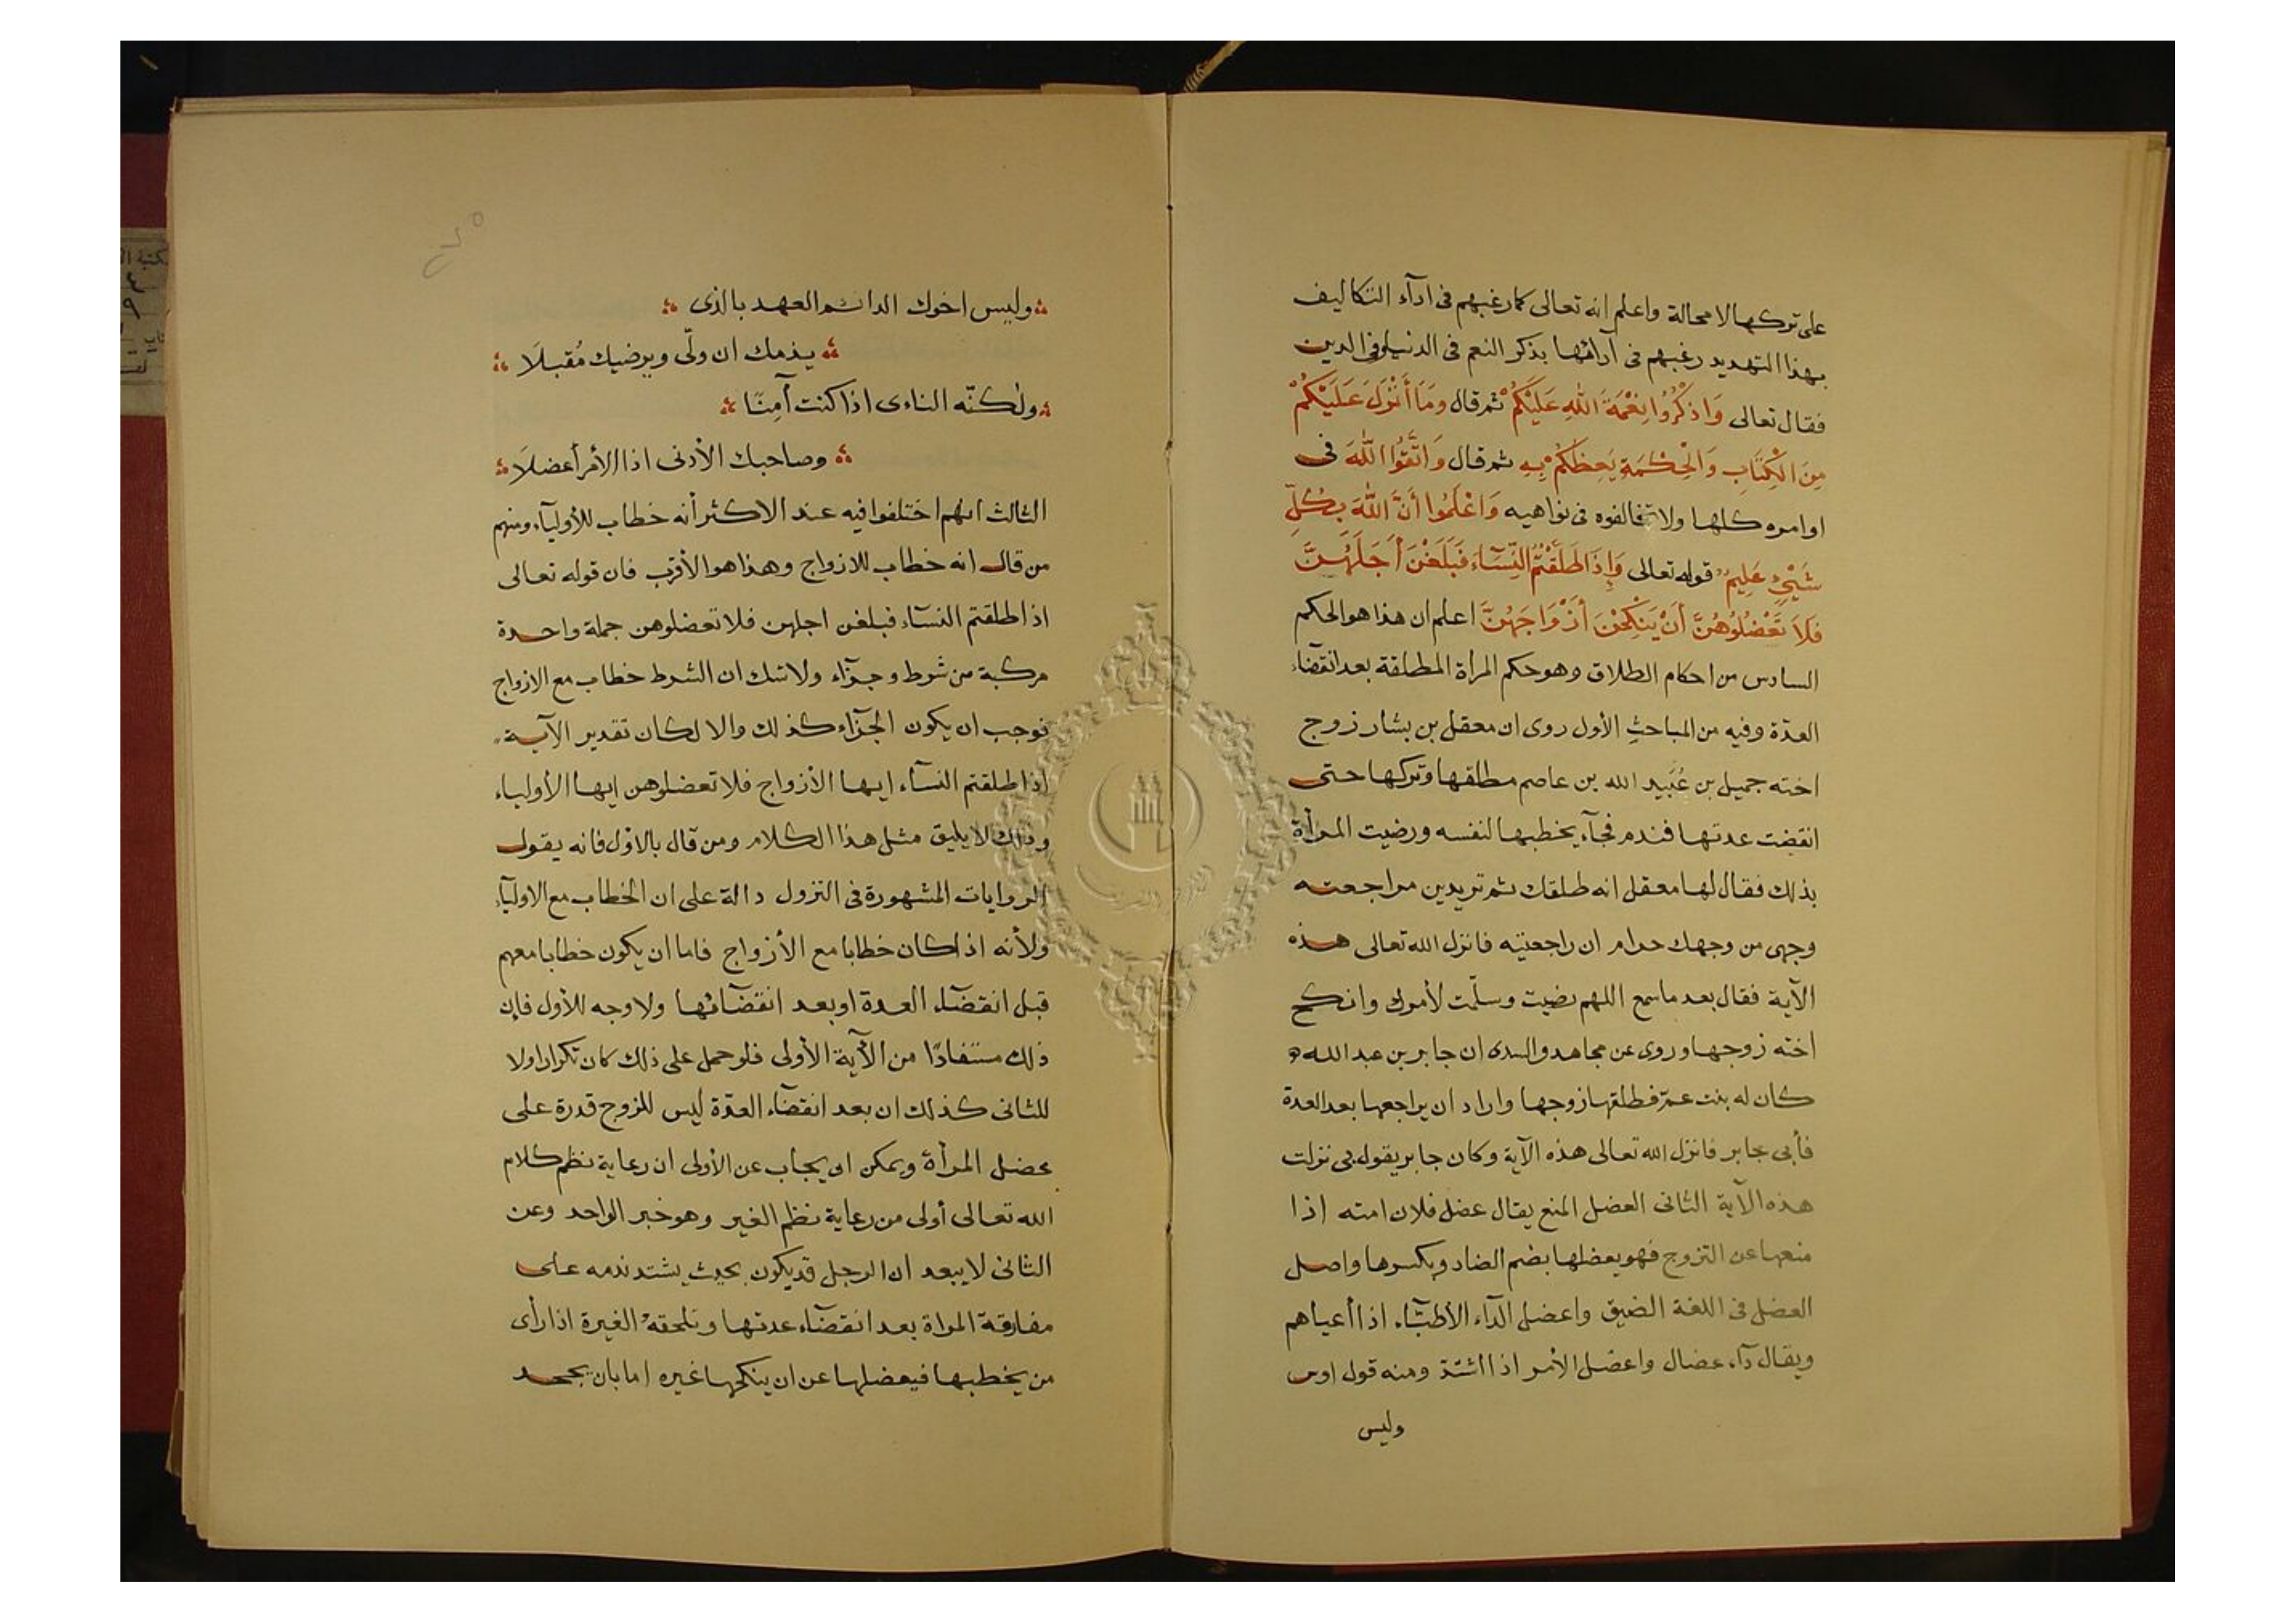 على تركها لا محالة واعلم انه تعالى كما رغبهم فى ادآء التكاليف
بهذا التهديد رغبهم فى آدائها بذكر النعم فى الدنيا وفى الدين
فقال تعالى وَاذْكُرُوا نِعْمَةَ اللهِ عَلَيْكُمْ ثم قال وَمَا أَنْزَلَ عَلَيْكُمْ
مِنَ الْكِتَابِ وَالْحِكْمَةِ يَعِظُكُمْ بِهِ ثم قال وَاتَّقُوا اللهَ فى
اوامره كلها ولا تخالفوه فى نواهيه وَاعْلَمُوا أَنَّ اللهَ بِكُلِّ
شَيْءٍ عَلِيمٌ قوله تعالى وَإِذَا طَلَّقْتُمُ النِّسَآءَ فَبَلَغْنَ أَجَلَهُنَّ
فَلاَ تَعْضُلُوهُنَّ أَنْ يَنْكِحْنَ أَزْوَاجَهُنَّ اعلم ان هذا هو الحكم
السادس من احكام الطلاق وهو حكم المرأة المطلقة بعد انقضآء
العدّة وفيه من المباحث الأول روى ان معقل بن بشار زوج
اخته جميل بن عُبَيد الله بن عاصم مطلقها وتركها حتى
انقضت عدتها فندم فجآء يخطبها لنفسه ورضيت المرأة
بذلك فقال لها معقل انه طلقك ثم تريدين مراجعته
وجهى من وجهك حرام ان راجعتيه فانزل الله تعالى هذه
الآية فقال بعد ما سمع اللهم رضيت وسلّمت لأمرك وانكح
اخته زوجها وروى عن مجاهد والسدى ان جابر بن عبد الله
كان له بنت عمّ فطلقها زوجها واراد ان يراجعها بعد العدة
فأبى جابر فانزل الله تعالى هذه الآية وكان جابر يقول بى نزلت
هذه الآية الثانى العضل المنع يقال عضل فلان امته اذا
منعها عن التزوج فهو يعضلها بضم الضاد وبكسرها واصل
العضل فى اللغة الضيق واعضل الدآء الأطبّآء اذا أعياهم
ويقال دآء عضال واعضل الأمر اذا اشتدّ ومنه قول اوس
وليس
وليس اخوك الدائم العهد بالذى
يذمك ان ولّى ويرضيك مُقبلَا
ولكنّه الناءى اذا كنت آمِنًا
وصاحبك الأدنى اذا الأمر أعضلَا
الثالث انهم اختلفوا فيه عند الاكثر أنه خطاب للأوليآء ومنهم
من قال انه خطاب للازواج وهذا هو الأقرب فان قوله تعالى
اذا طلقتم النسآء فبلغن اجلهن فلا تعضلوهن جملة واحدة
مركبة من شرط وجزآء ولا شك ان الشرط خطاب مع الازواج
فوجب ان يكون الجزآء كذلك والا لكان تقدير الآية
اذا طلقتم النسآء ايها الأزواج فلا تعضلوهن ايها الأولياء
وذلك لا يليق مثل هذا الكلام ومن قال بالاوّل فانه يقول
الروايات المشهورة فى النزول دالة على ان الخطاب مع الاوليآء
ولأنه اذا كان خطابا مع الأزواج فاما ان يكون خطابا معهم
قبل انقضآء العدة او بعد انقضآئها ولا وجه للأول فإن
ذلك مستفادًا من الآية الأولى فلو حمل على ذلك كان تكرارا ولا
للثانى كذلك ان بعد انقضآء العدّة ليس للزوج قدرة على
عضل المرأة ويمكن ان يجاب عن الأولى ان رعاية نظم كلام
الله تعالى أولى من رعاية نظم الغير وهو خبر الواحد وعن
الثانى لا يبعد ان الرجل قد يكون بحيث يشتد ندمه على
مفارقة المراة بعد انقضآء عدتها وتلحقهُ الغيرة اذا رأى
من يخطبها فيعضلها عن ان ينكحها غيره اما بان يجحد